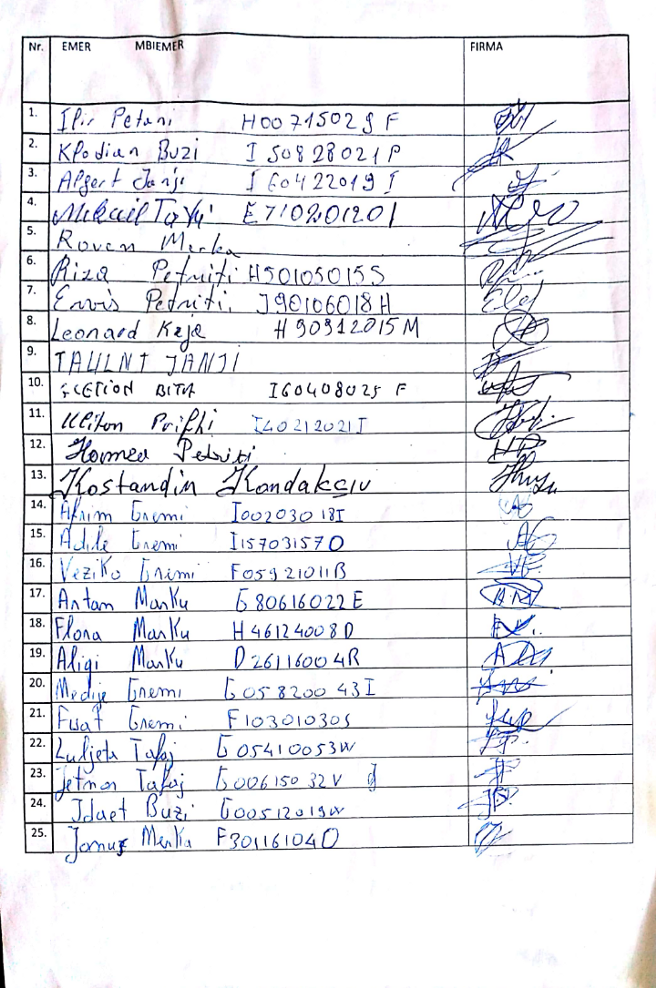 Nr. EMER MBIEMER FIRMA
1. Ilir Petani H00715029F
2. Klodian Buzi I50828021P
3. Algert Janji I60422019I
4. Mikail E710201201
5. Roven Merka
6. Riza Petriti H50105015S
7. Ervis Petriti J90106018H
8. Leonard Keja H90912015M
9. TAULNT JANJI
10. BITA I60408025F
11. Prifti I40212021I
12. Petriti
13. Kostandin Kondakçiu
14. Afrim Gremi I00203018I
15. Adile Gremi I15703157O
16. Veziko Gremi F05921011B
17. Antan Marku G80616022E
18. Flora Marku H46124008D
19. Aligi Marku D26116004R
20. Medije Gremi G05820043I
21. Fuat Gremi F10301030S
22. Luljeta Tafaj G05410053W
23. Jetmor Tafaj G00615032V
24. Idaet Buzi G00512019W
25. Merka F30116104O